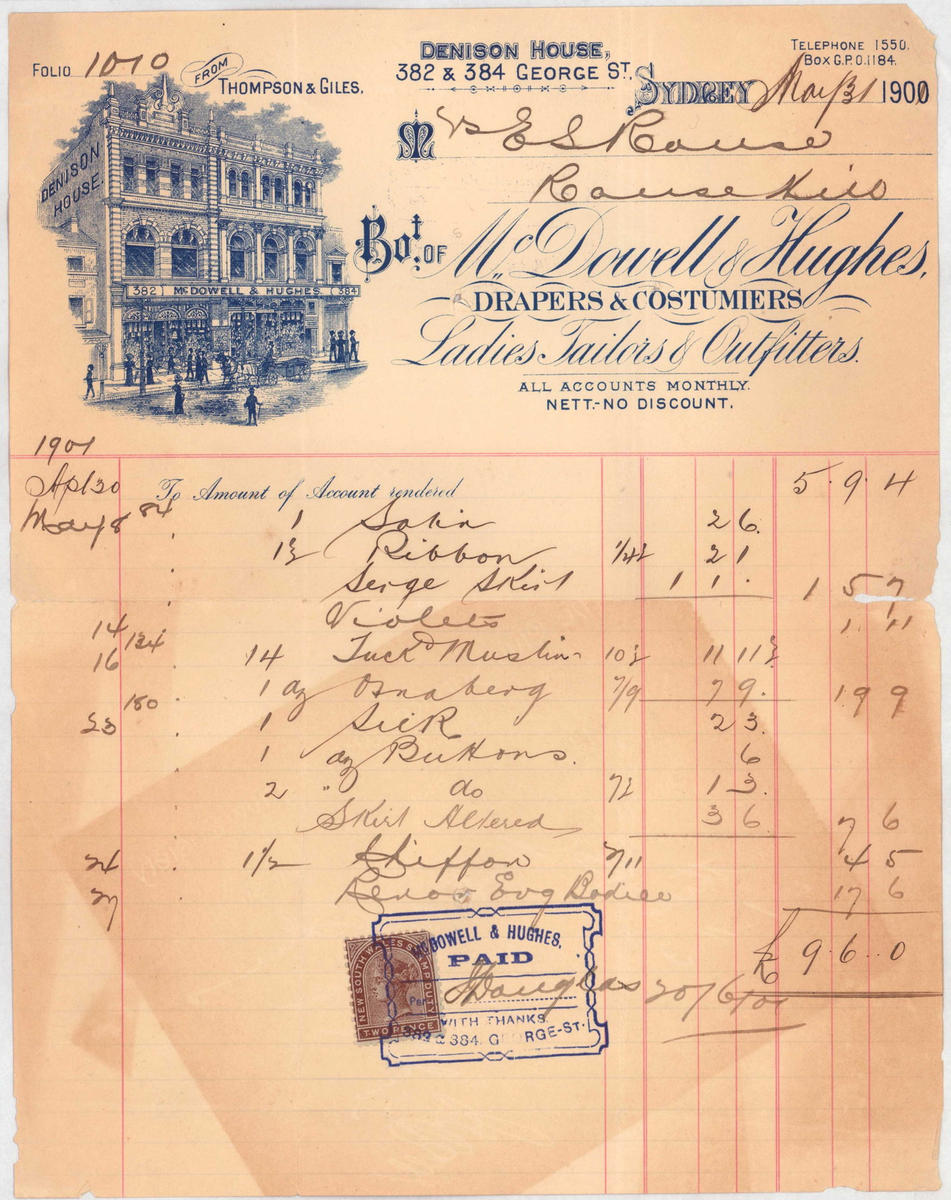 FOLIO 1010
FROM THOMPSON & GILES.
DENISON HOUSE,
382 & 384 GEORGE ST.
TELEPHONE 1550.
BOX G.P.O. 1184.
SYDNEY May 31 1900
Mrs E S Rouse
Rouse Hill
DENISON HOUSE.
382 McDOWELL & HUGHES 384
Bot. OF McDowell & Hughes,
DRAPERS & COSTUMIERS
Ladies Tailors & Outfitters.
ALL ACCOUNTS MONTHLY.
NETT.-NO DISCOUNT.
1901
Apl 30 To Amount of Account rendered 5. 9. 4
May 8 84 1 Satin 2 6.
1½ Ribbon 1/4½ 2 1
Serge Skirt 1 1 . 1 5 7
14 Violets 1. 11
16 134 14 Tuckd Muslin 10½ 11 11½
1 dz Osnaberg 7/9 7 9. 19 9
23 180 1 Silk 2 3.
1 dz Buttons. 6
2 " do 7½ 1 3.
Skirt Altered 3 6 7 6
24 1 1/2 Chiffon 2/11 4 5
27 Renov Evg Bodice 17 6
£ 9. 6. 0
McDOWELL & HUGHES,
PAID
Per Douglas 20/6/01
WITH THANKS.
382 & 384. GEORGE-ST.
NEW SOUTH WALES STAMP DUTY
TWO PENCE